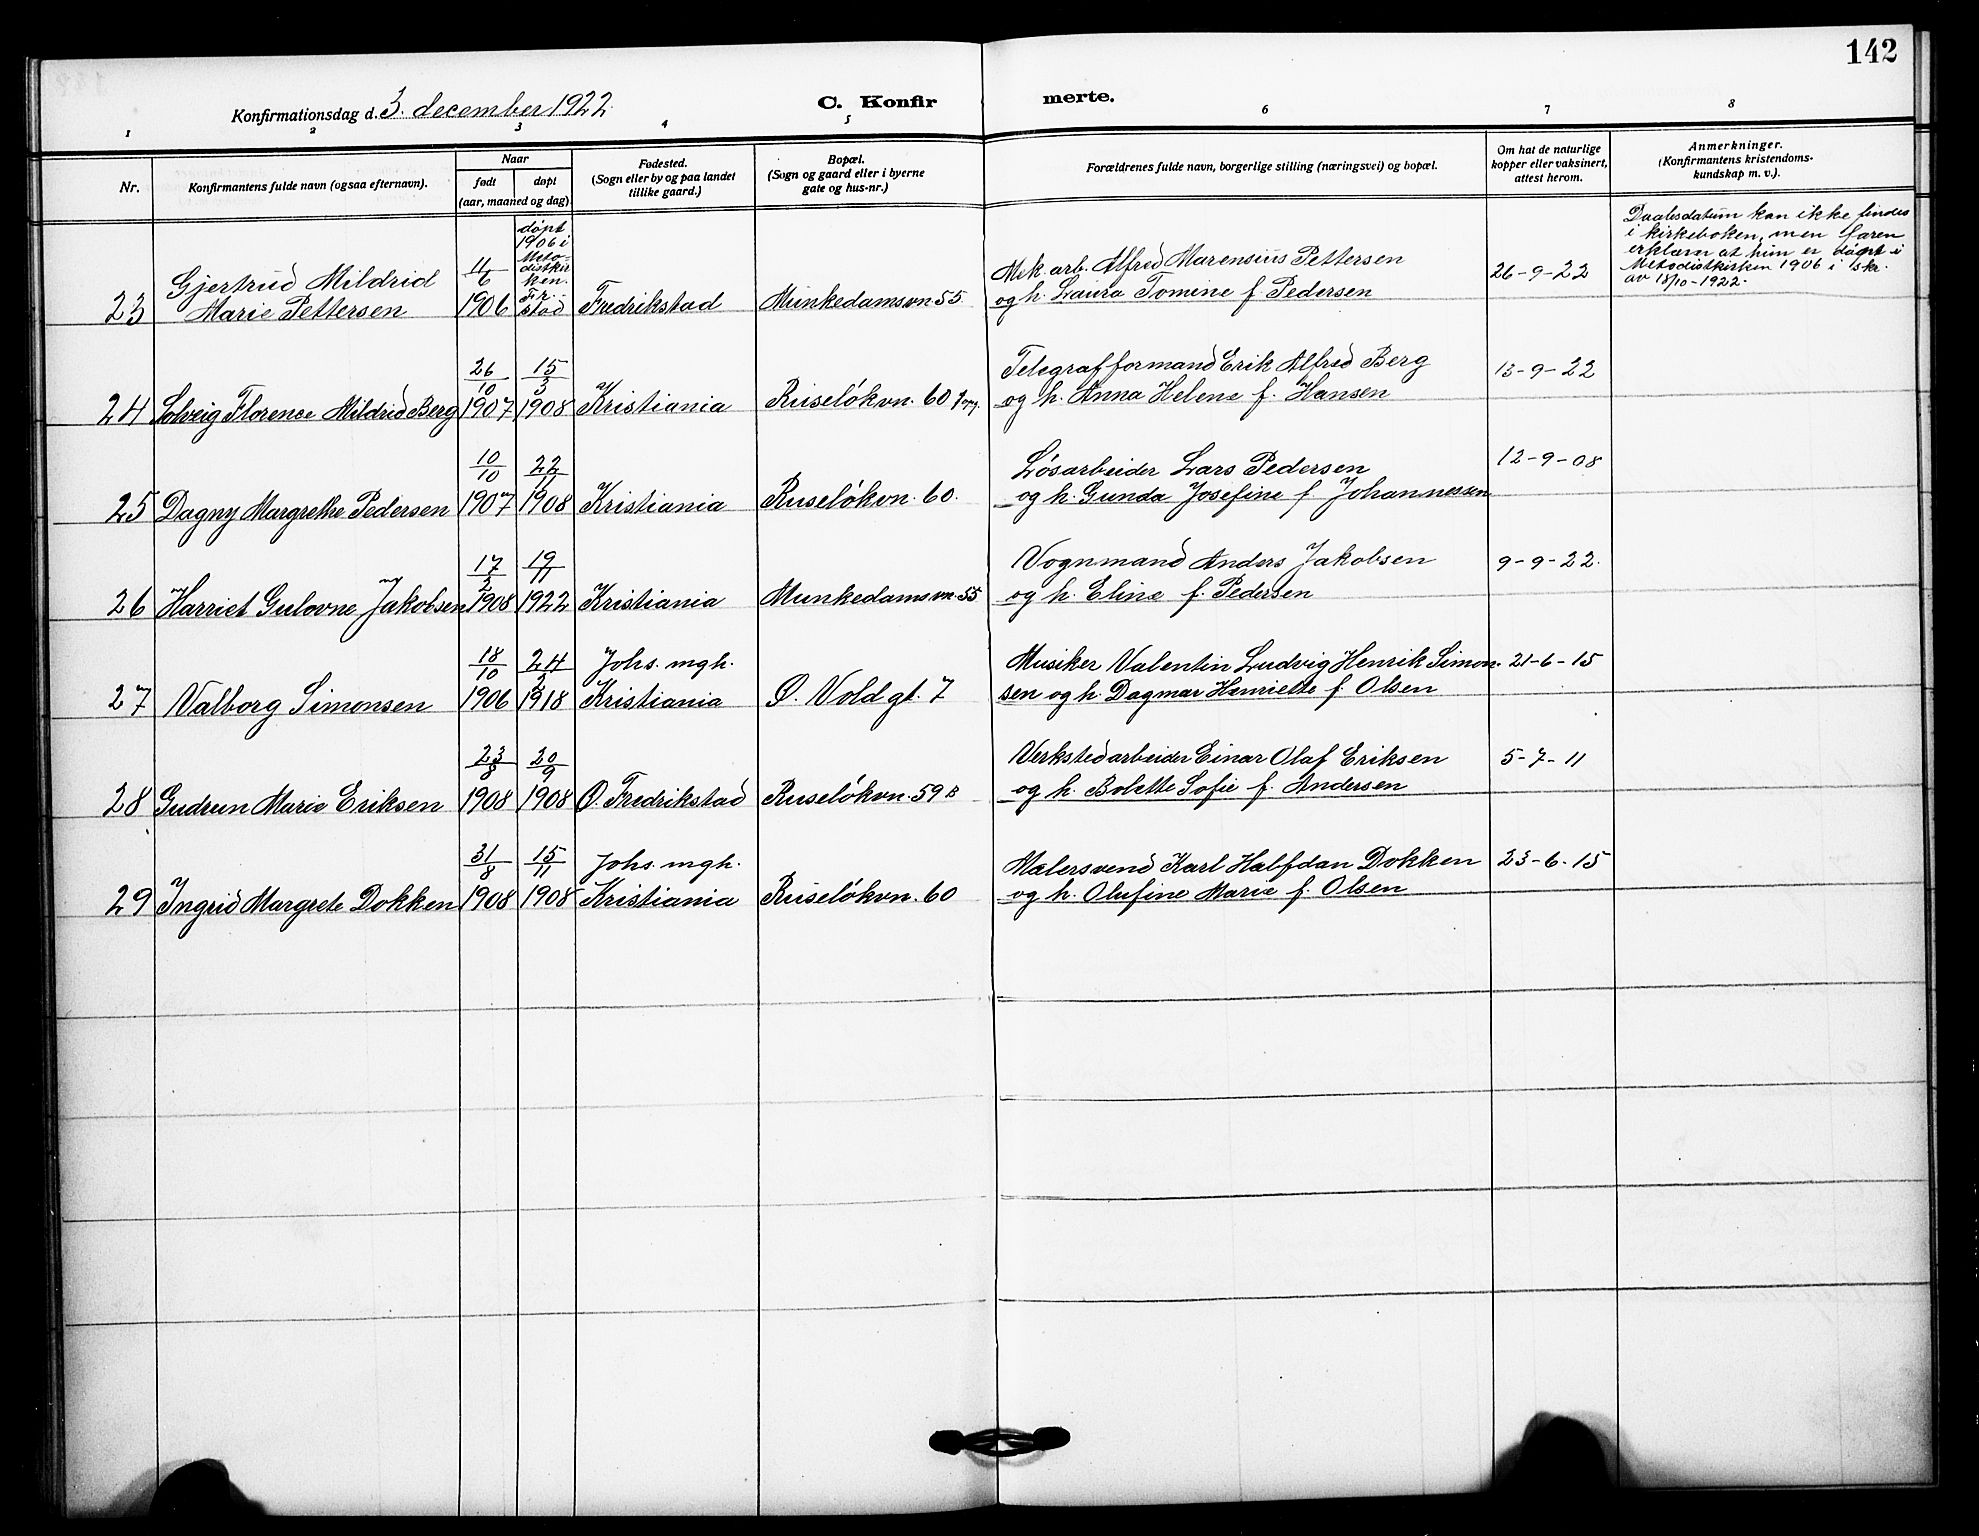 142
Konfirmationsdag d. 3. december 1922.
C. Konfirmerte.
1 2 3 4 5 6 7 8
Nr.
Konfirmantens fulde navn (ogsaa efternavn).
Naar
født døpt
(aar, maaned og dag)
Fødested.
(Sogn eller by og paa landet
tillike gaard.)
Bopæl.
(Sogn og gaard eller i byerne
gate og hus-nr.)
Forældrenes fulde navn, borgerlige stilling (næringsvei) og bopæl.
Om hat de naturlige
kopper eller vaksinert,
attest herom.
Anmerkninger.
(Konfirmantens kristendoms-
kundskap m. v.).
23
Gjertrud Mildrid
Marie Pettersen
11/6
1906
døpt
1906 i
Meto-
distkir
ken.
Fr.-
stad
Fredrikstad
Munkedamsvn 55
Mek. arb. Alfred Marensius Pettersen
og h. Laura Tomine f. Pedersen
26-9-22
Daabsdatum kan ikke findes
i kirkeboken, men faren
erklærer at hun er døpt i
Metodistkirken 1906 i skr.
av 18/10-1922.
24
Solveig Florence Mildrid Berg
26/10
1907
15/3
1908
Kristiania
Ruseløkvn. 60
Telegrafformand Erik Alfred Berg
og h. Anna Helene f. Hansen
13-9-22
25
Dagny Margrethe Pedersen
10/10
1907
22/11
1908
Kristiania
Ruseløkvn. 60.
Løsarbeider Lars Pedersen
og h. Gunda Josefine f. Johannessen
12-9-08
26
Harriet Gulovne Jakobsen
17/2
1908
19/11
1922
Kristiania
Munkedamsvn. 55
Vognmand Anders Jakobsen
og h. Eline f. Pedersen
9-9-22.
27
Valborg Simonsen
18/10
1906
24/2
1918
Johs. mgh.
Kristiania
Ø. Vold gt. 7
Musiker Valentin Ludvig Henrik Simon-
sen og h. Dagmar Henriette f. Olsen
21-6-15
28
Gudrun Marie Eriksen
23/8
1908
20/9
1908
Ø. Fredrikstad
Ruseløkvn. 59 B
Verkstedarbeider Einar Olaf Eriksen
og h. Bolette Sofie f. Andersen
5-7-11
29
Ingrid Margrete Dokken
31/8
1908
15/11
1908
Johs. mgh.
Kristiania
Ruseløkvn. 60
Malersvend Karl Halfdan Dokken
og h. Olufine Marie f. Olsen
23-6-15